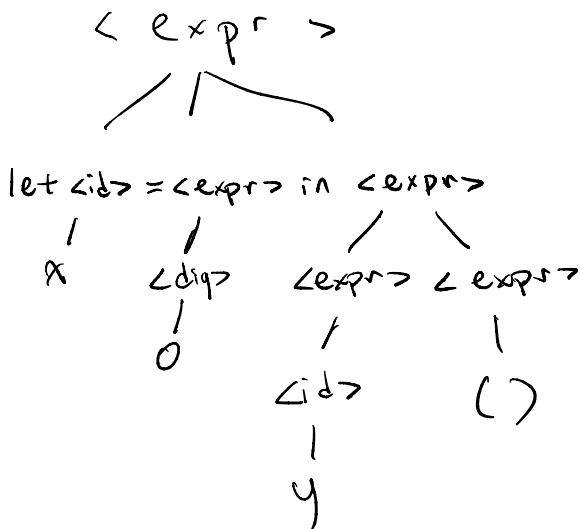 < expr >
let <id> = <expr> in <expr>
x <dig> <expr> <expr>
0 <id> ()
y